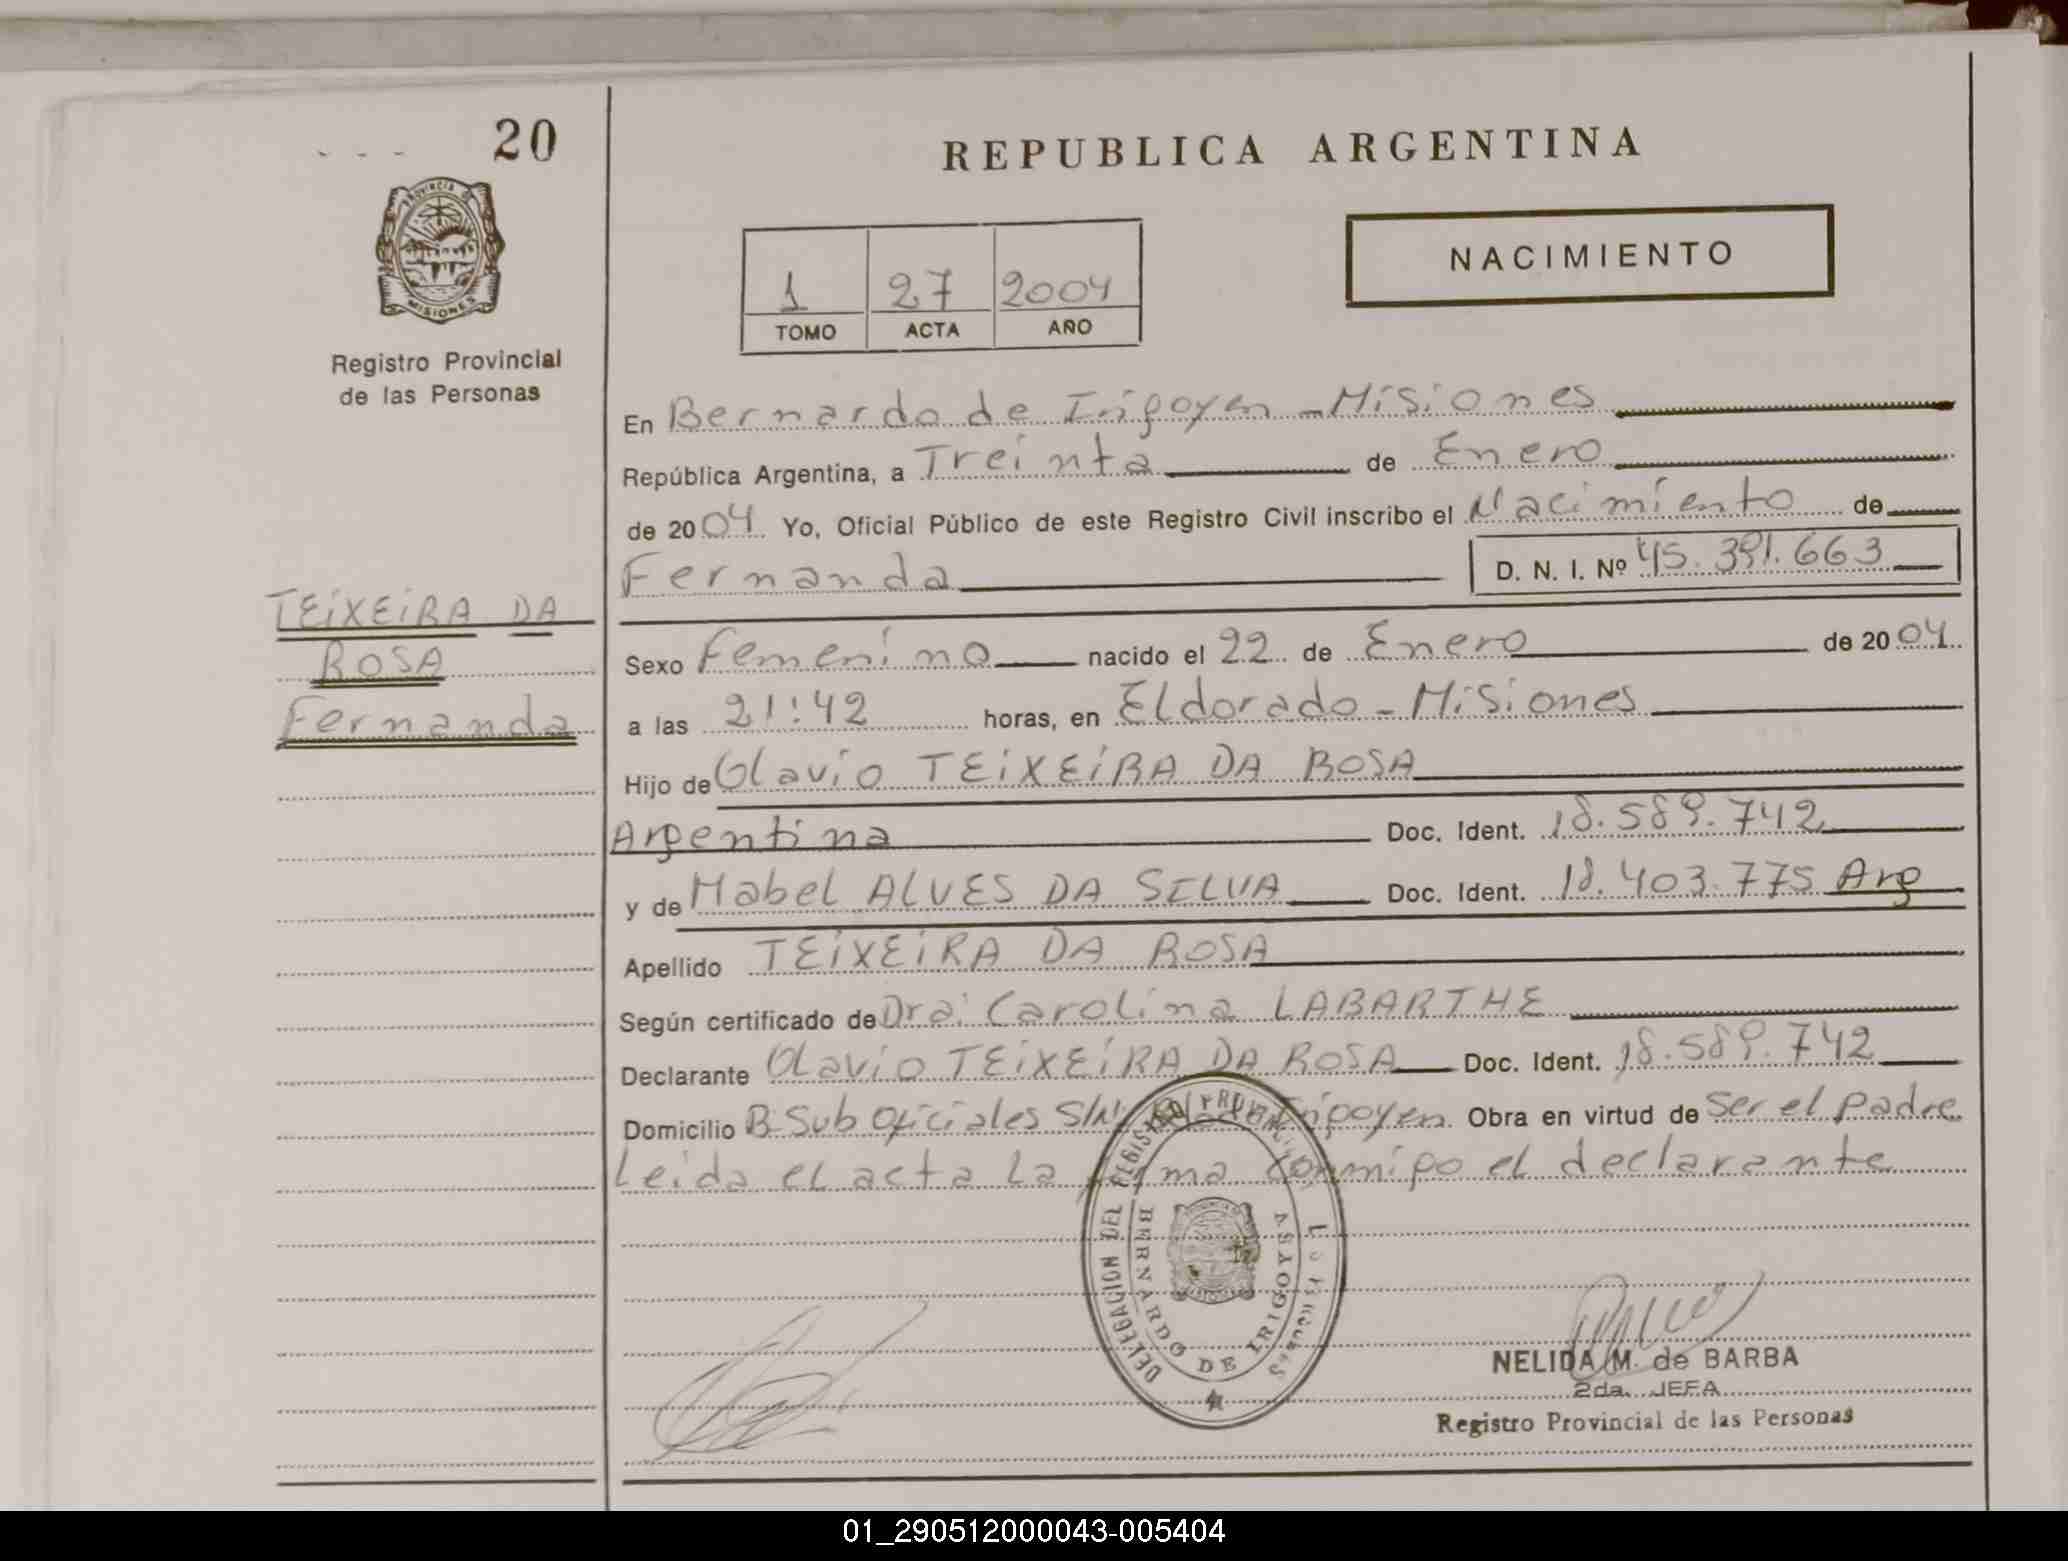 20
REPUBLICA ARGENTINA
NACIMIENTO
1 27 2004
TOMO ACTA AÑO
PROVINCIA DE
MISIONES
Registro Provincial
de las Personas
TEIXEIRA DA
ROSA
Fernanda
En Bernardo de Irigoyen - Misiones
República Argentina, a Treinta de Enero
de 2004 Yo, Oficial Público de este Registro Civil inscribo el Nacimiento de
Fernanda D. N. I. Nº 45.391.663
Sexo Femenino nacido el 22 de Enero de 2004
a las 21:42 horas, en Eldorado - Misiones
Hijo de Olavio TEIXEIRA DA ROSA
Argentina Doc. Ident. 18.589.742
y de Mabel ALVES DA SILVA Doc. Ident. 18.403.775 Arg
Apellido TEIXEIRA DA ROSA
Según certificado de Dra: Carolina LABARTHE
Declarante Olavio TEIXEIRA DA ROSA Doc. Ident. 18.589.742
Domicilio B. Sub Oficiales S/N Irigoyen Obra en virtud de Ser el padre
Leida el acta La firma Conmigo el declarante
DELEGACION DEL REGISTRO PROVINCIAL
BERNARDO DE IRIGOYEN
NELIDA M. de BARBA
2da. JEFA
Registro Provincial de las Personas
01_290512000043-005404